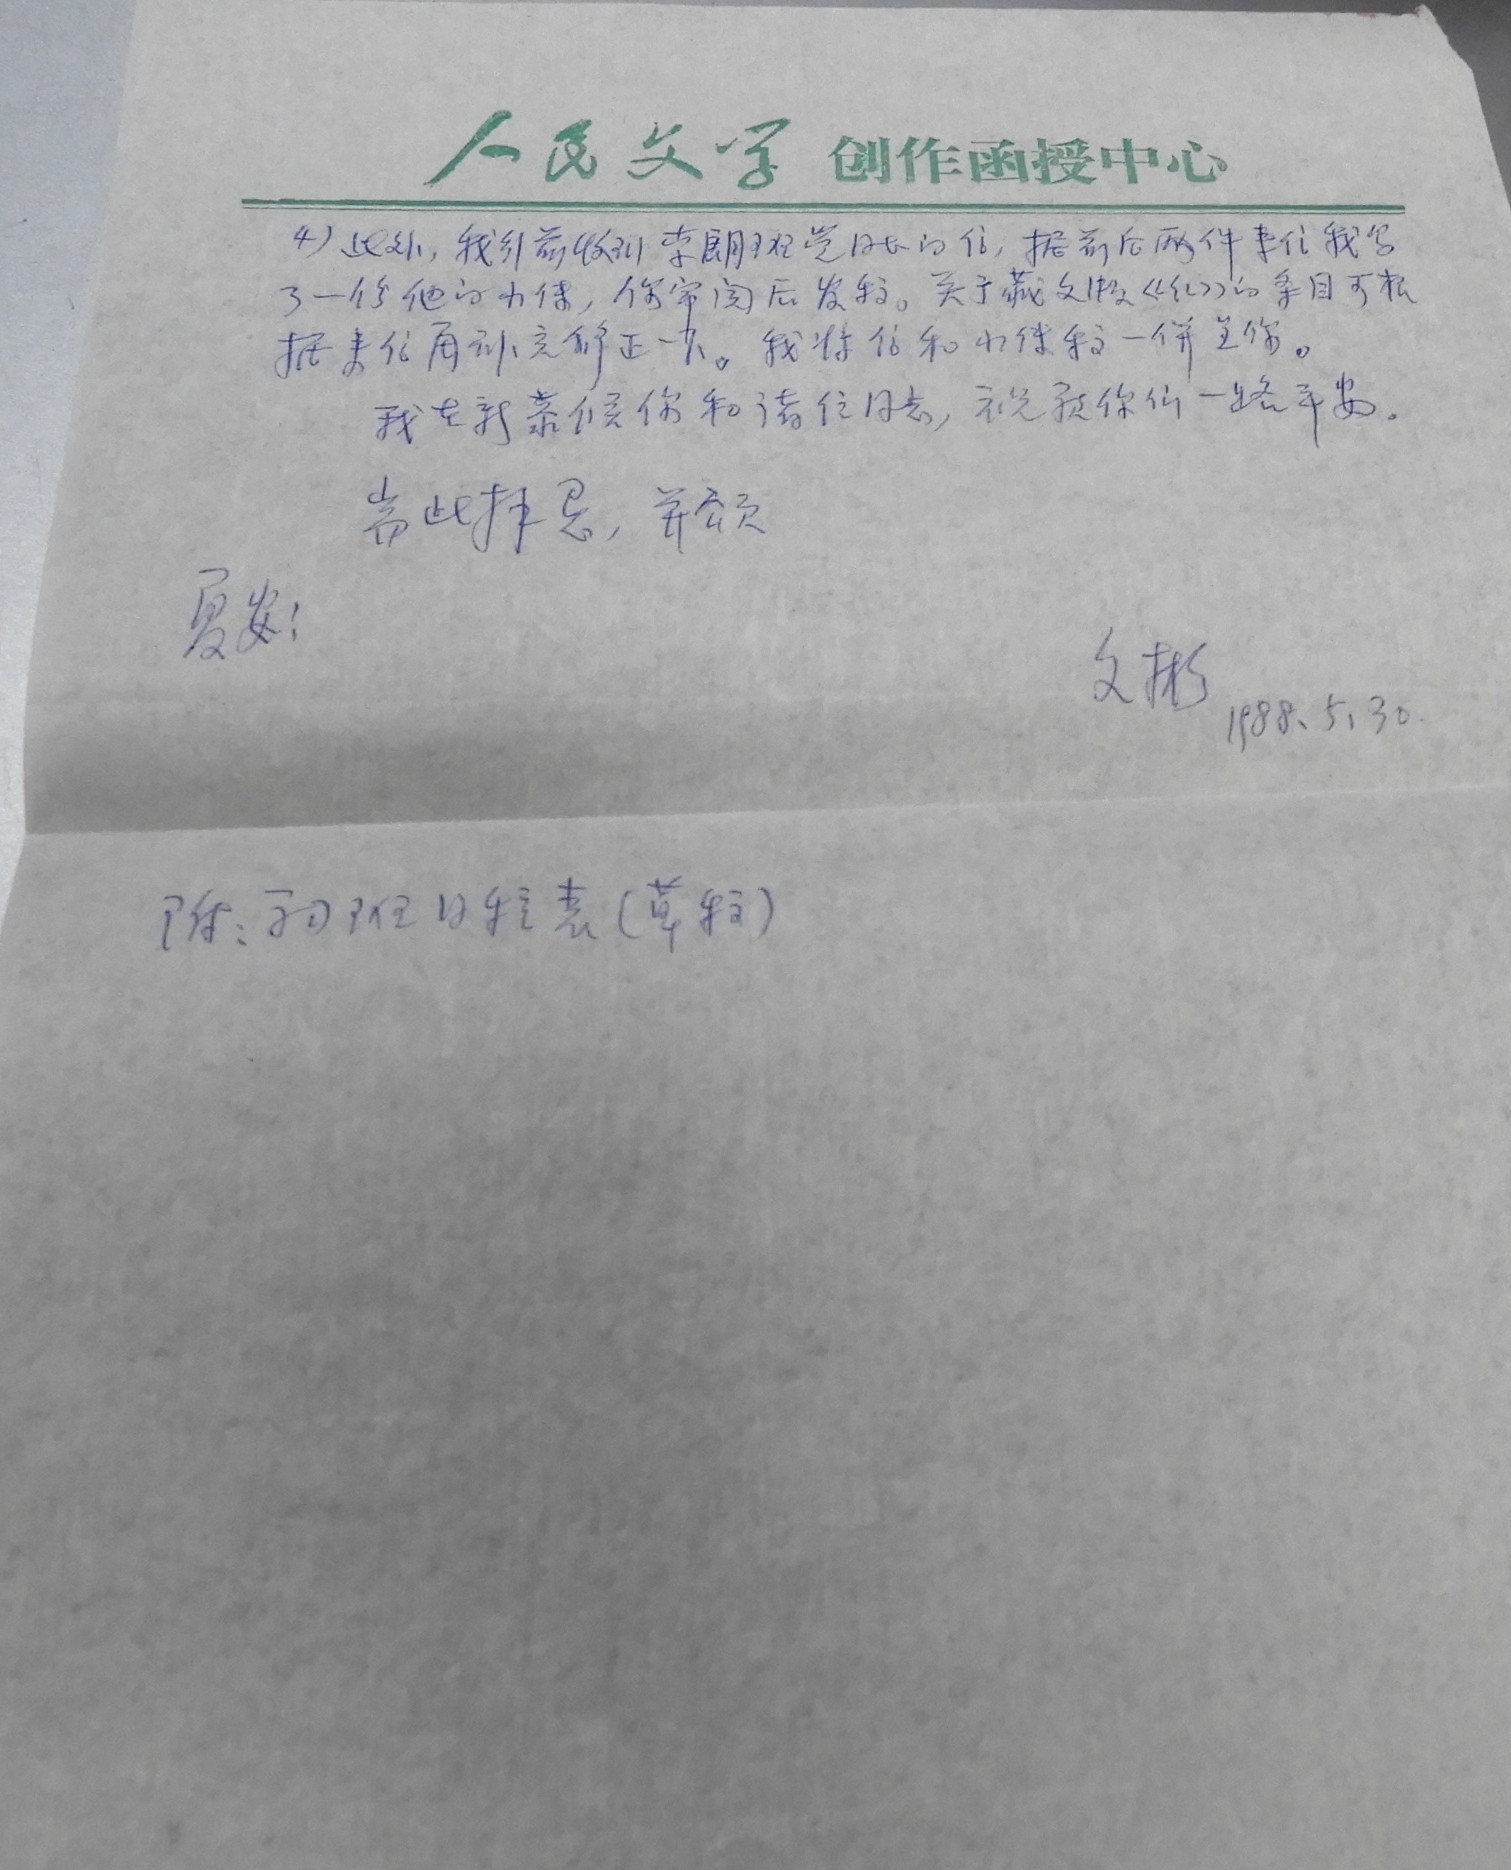 人民文学 创作函授中心
4）此外，我行前收到索朗班觉同志的信，据前后两件来信我写
了一份他的小传，你审阅后发稿。关于藏文版《红》的条目可根
据来信再补充修正一下。我将信和小传稿一併呈你。
我在新恭候你和诸位同志，祝愿你们一路平安。
耑此拜恳，并颂
夏安！
文彬
1988.5.30.
附：初班日程表（草稿）